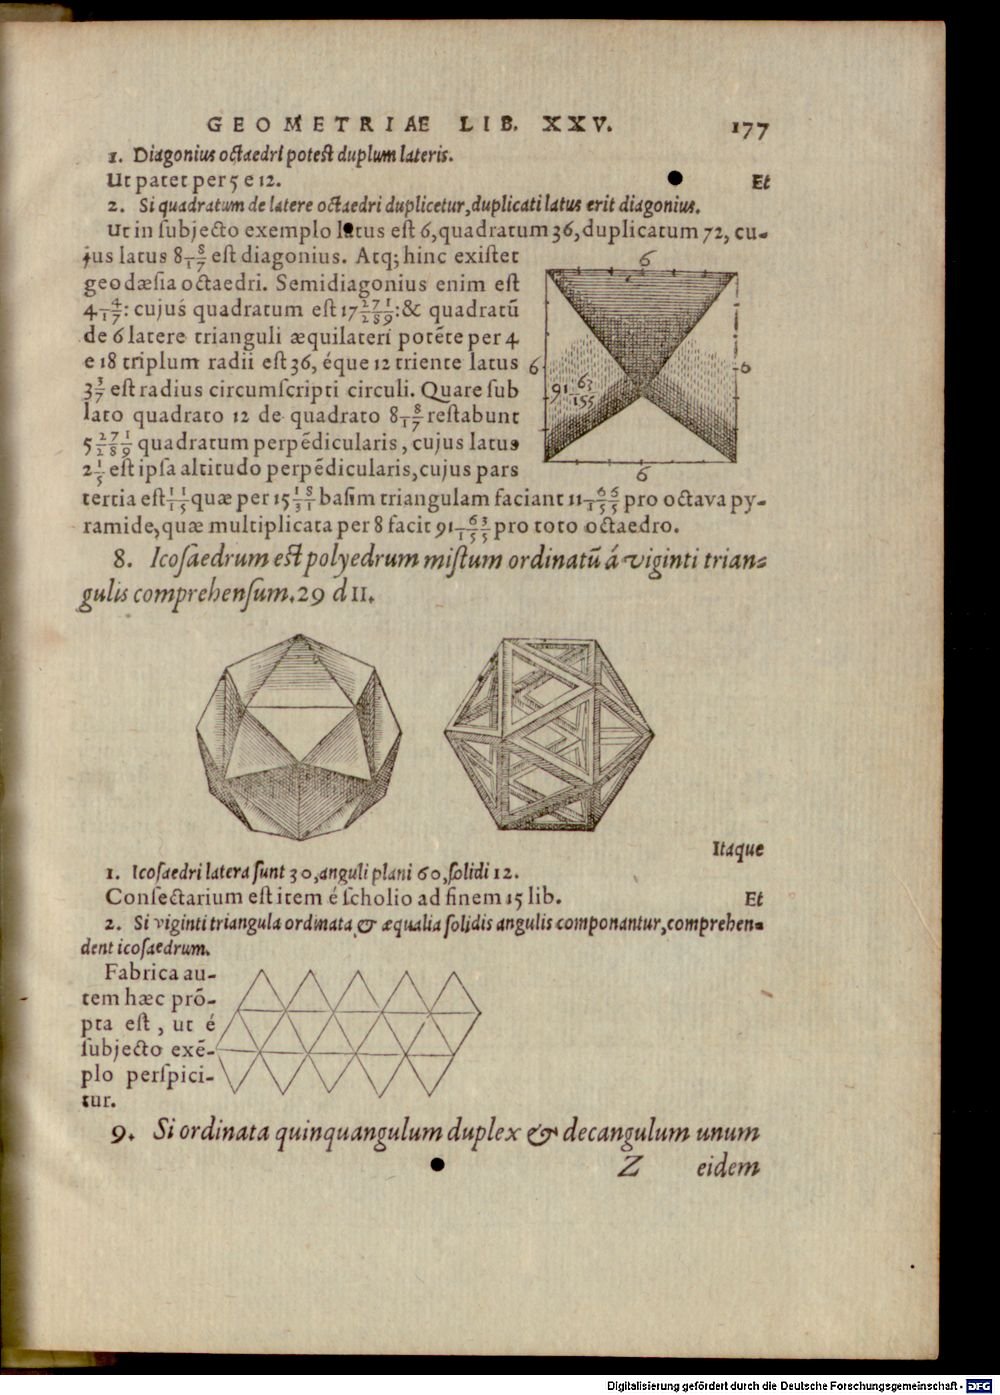 GEOMETRIAE LIB. XXV. 177
1. Diagonius octaedri potest duplum lateris.
Ut patet per 5 e 12. Et
2. Si quadratum de latere octaedri duplicetur, duplicati latus erit diagonius.
Ut in ſubjecto exemplo latus eſt 6, quadratum 36, duplicatum 72, cu-
jus latus 8 8/17 eſt diagonius. Atq; hinc exiſtet
geodæſia octaedri. Semidiagonius enim eſt
4 4/17: cujus quadratum eſt 17 271/289: & quadratū
de 6 latere trianguli æquilateri potēte per 4
e 18 triplum radii eſt 36, éque 12 triente latus
3 3/7 eſt radius circumſcripti circuli. Quare ſub
lato quadrato 12 de quadrato 8 8/17 reſtabunt
5 271/289 quadratum perpēdicularis, cujus latus
2 1/5 eſt ipſa altitudo perpēdicularis, cujus pars
tertia eſt 11/15 quæ per 15 18/31 baſim triangulam faciant 11 66/155 pro octava py-
ramide, quæ multiplicata per 8 facit 91 63/155 pro toto octaedro.
6
6
6
91 63/155
6
8. Icoſaedrum eſt polyedrum miſtum ordinatū á viginti trian-
gulis comprehenſum. 29 d 11.
Itaque
1. Icoſaedri latera ſunt 30, anguli plani 60, ſolidi 12.
Conſectarium eſt item é ſcholio ad finem 15 lib. Et
2. Si viginti triangula ordinata & æqualia ſolidis angulis componantur, comprehen-
dent icoſaedrum.
Fabrica au-
tem hæc prō-
pta eſt, ut é
ſubjecto exē-
plo perſpici-
tur.
9. Si ordinata quinquangulum duplex & decangulum unum
Z eidem
Digitalisierung gefördert durch die Deutsche Forschungsgemeinschaft - DFG